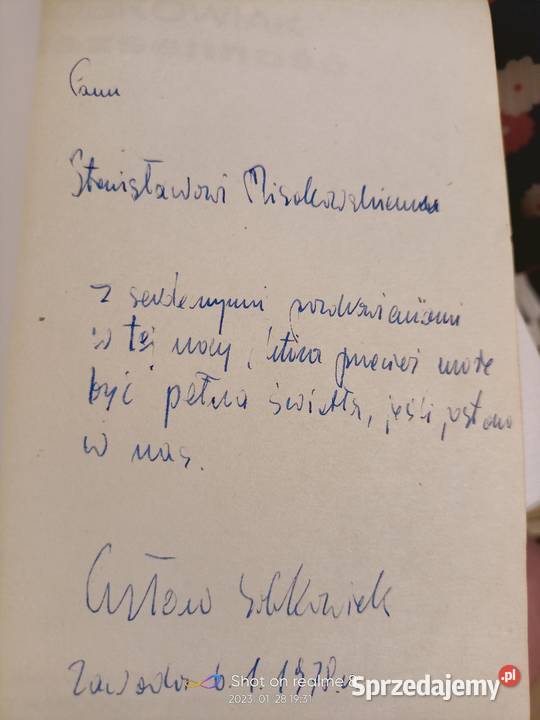 Panu
Stanisławowi Misakowskiemu
z serdecznymi pozdrowieniami
w tej nocy, która przecież może
być pełna światła, jeśli jest ono
w nas.
Sobkowiak
1. 1978 r.
Shot on realme 8
2023. 01. 28 19:31
Sprzedajemy.pl